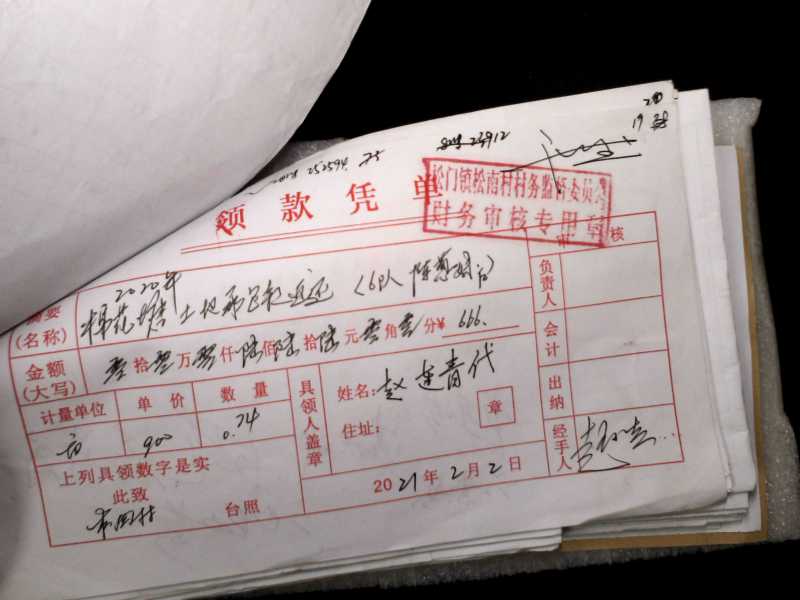 20
19 38
252594.75
23912
领款凭单
松门镇松南村村务监督委员会
财务审核专用章
审核
摘要
(名称)
2020年
棉花塘土地承包款返还(6队
金额
(大写)
零拾零万零仟陆佰陆拾陆元零角零分¥ 666.
计量单位 单价 数量
亩 900 0.74
具领人盖章
姓名:赵连青代
住址:
章
负责人
会计
出纳
经手人
上列具领数字是实
此致
台照
2021年2月2日